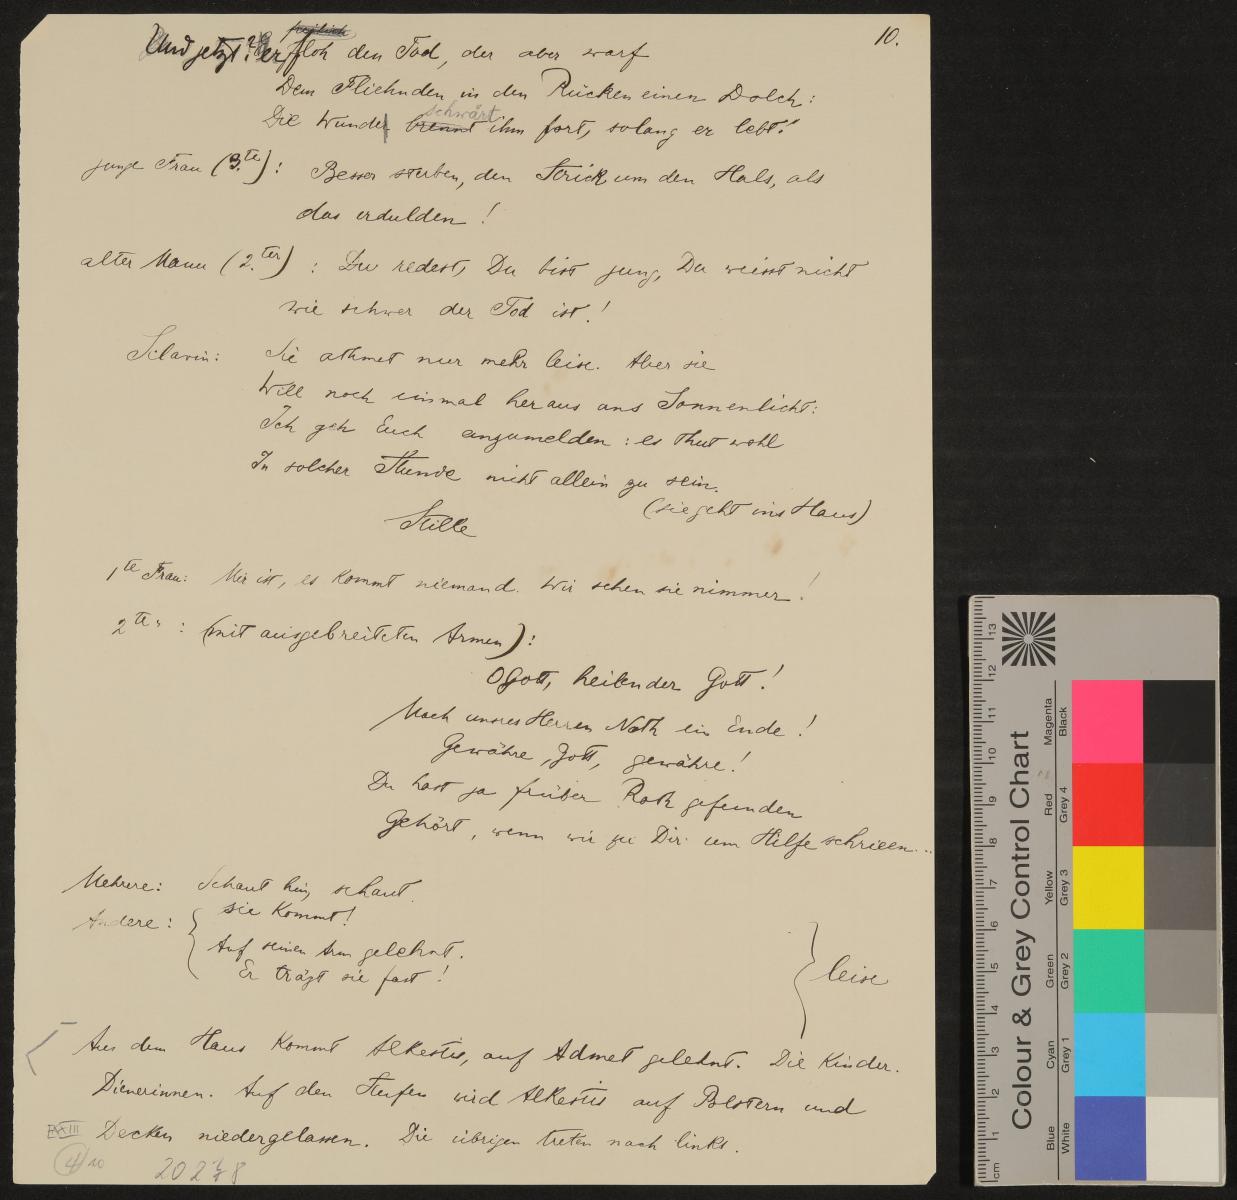 10.
Und jetzt? er floh den Tod, der aber warf
Dem Fliehnden in den Rücken einen Dolch:
schwärt
Die Wunde brennt ihm fort, solang er lebt!"
junge Frau (3.te): Besser sterben, den Strick um den Hals, als
das erdulden!
alter Mann (2.ter): Du redest, Du bist jung, Du weisst nicht
wie schwer der Tod ist!
Sclavin: Sie athmet nur mehr leise. Aber sie
Will noch einmal heraus ans Sonnenlicht:
Ich geh Euch anzumelden: es thut wohl
In solcher Stunde nicht allein zu sein.
(sie geht ins Haus)
Stille
1te Frau: Mir ist, es kommt niemand. Wir sehen sie nimmer!
2te " : (mit ausgebreiteten Armen):
O Gott, heilender Gott!
Mach unsres Herren Noth ein Ende!
Gewähre, Gott, gewähre!
Du hast ja früher Rath gefunden
Gehört, wenn wir zu Dir um Hilfe schrieen...
Mehrere: Schaut hin, schaut.
Andere: { sie kommt!
Auf seinen Arm gelehnt.
Er trägt sie fast!
} leise
Aus dem Haus kommt Alkestis, auf Admet gelehnt. Die Kinder.
Dienerinnen. Auf den Stufen wird Alkestis auf Polstern und
Decken niedergelassen. Die übrigen treten nach links.
Colour & Grey Control Chart
Blue Cyan Green Yellow Red Magenta
White Grey 1 Grey 2 Grey 3 Grey 4 Black
cm 1 2 3 4 5 6 7 8 9 10 11 12 13